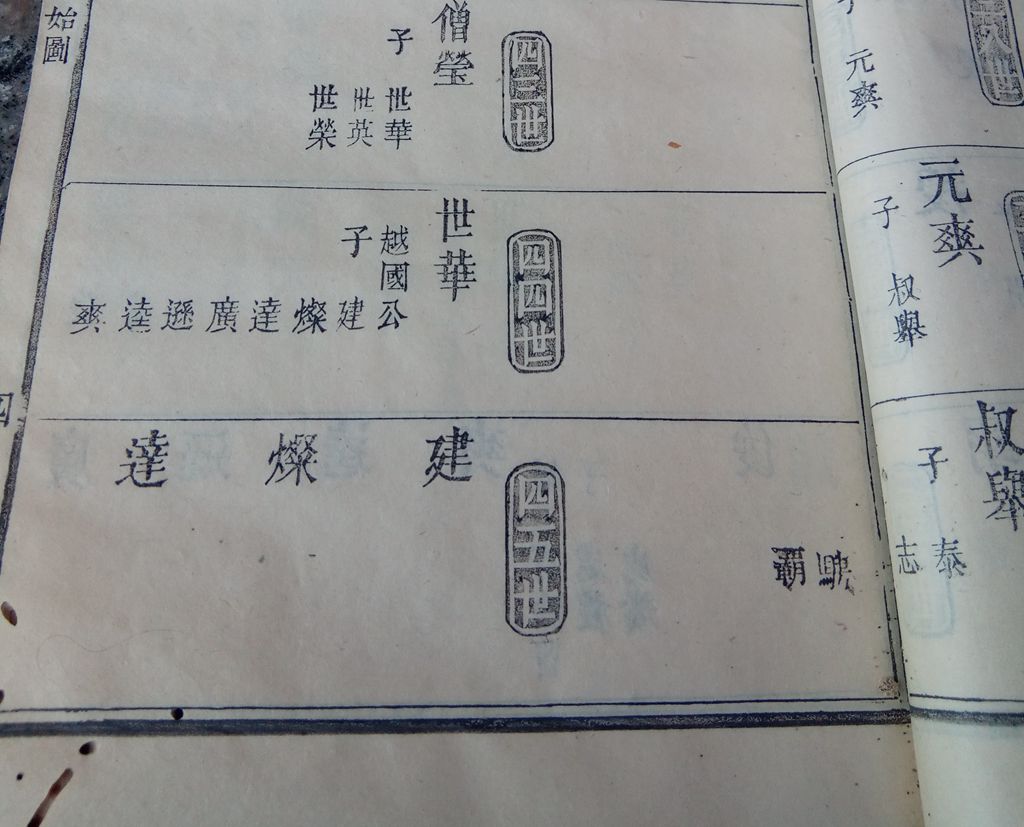 元爽
元爽
子
叔舉
叔舉
子
泰
志
四三世
僧瑩
子
世華
世英
世榮
四四世
世華
越國公
子
建
燦
達
廣
遜
逵
爽
霸
四五世
建
燦
達
始圖
四